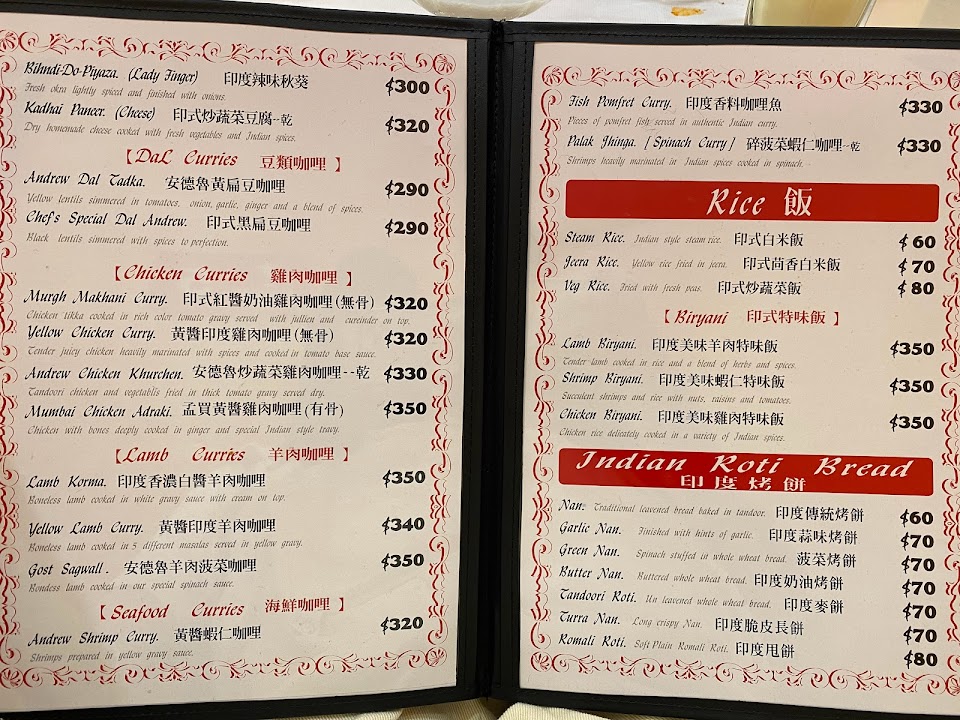 Bihndi-Do-Piyaza. (Lady Finger) 印度辣味秋葵 $300
Fresh okra lightly spiced and finished with onions.
Kadhai Paneer. (Cheese) 印式炒蔬菜豆腐--乾 $320
Dry homemade cheese cooked with fresh vegetables and Indian spices.
【Dal Curries 豆類咖哩】
Andrew Dal Tadka. 安德魯黃扁豆咖哩 $290
Yellow lentils simmered in tomatoes, onion, garlic, ginger and a blend of spices.
Chef's Special Dal Andrew. 印式黑扁豆咖哩 $290
Black lentils simmered with spices to perfection.
【Chicken Curries 雞肉咖哩】
Murgh Makhani Curry. 印式紅醬奶油雞肉咖哩(無骨) $320
Chicken tikka cooked in rich color tomato gravy served with jullien and cureinder on top.
Yellow Chicken Curry. 黃醬印度雞肉咖哩(無骨) $320
Tender juicy chicken heavily marinated with spices and cooked in tomato base sauce.
Andrew Chicken Khurchen. 安德魯炒蔬菜雞肉咖哩--乾 $330
Tandoori chicken and vegetablis fried in thick tomato gravy served dry.
Mumbai Chicken Adraki. 孟買黃醬雞肉咖哩(有骨) $350
Chicken with bones deeply cooked in ginger and special Indian style travy.
【Lamb Curries 羊肉咖哩】
Lamb Korma. 印度香濃白醬羊肉咖哩 $350
Boneless lamb cooked in white gravy sauce with cream on top.
Yellow Lamb Curry. 黃醬印度羊肉咖哩 $340
Boneless lamb cooked in 5 different masalas served in yellow gravy.
Gost Sagwall. 安德魯羊肉菠菜咖哩 $350
Bondess lamb cooked in our special spinach sauce.
【Seafood Curries 海鮮咖哩】
Andrew Shrimp Curry. 黃醬蝦仁咖哩 $320
Shrimps prepared in yellow gravy sauce.
Fish Pomfret Curry. 印度香料咖哩魚 $330
Pieces of pomfret fish served in authentic Indian curry.
Palak Jhinga. [Spinach Curry] 碎菠菜蝦仁咖哩--乾 $330
Shrimps heavily marinated in Indian spices cooked in spinach.
Rice 飯
Steam Rice. Indian style steam rice. 印式白米飯 $60
Jeera Rice. Yellow rice fried in jeera. 印式茴香白米飯 $70
Veg Rice. Fried with fresh peas. 印式炒蔬菜飯 $80
【Biryani 印式特味飯】
Lamb Biryani. 印度美味羊肉特味飯 $350
Tender lamb cooked in rice and a blend of herbs and spices.
Shrimp Biryani. 印度美味蝦仁特味飯 $350
Succulent shrimps and rice with nuts, raisins and tomatoes.
Chicken Biryani. 印度美味雞肉特味飯 $350
Chicken rice delicately cooked in a variety of Indian spices.
Indian Roti Bread
印度烤餅
Nan: Traditional leavened bread baked in tandoor. 印度傳統烤餅 $60
Garlic Nan. Finished with hints of garlic. 印度蒜味烤餅 $70
Green Nan. Spinach stuffed in whole wheat bread. 菠菜烤餅 $70
Butter Nan. Buttered whole wheat bread. 印度奶油烤餅 $70
Tandoori Roti. Un leavened whole wheat bread. 印度麥餅 $70
Turra Nan. Long crispy Nan. 印度脆皮長餅 $70
Romali Roti. Soft Plain Romali Roti. 印度甩餅 $80